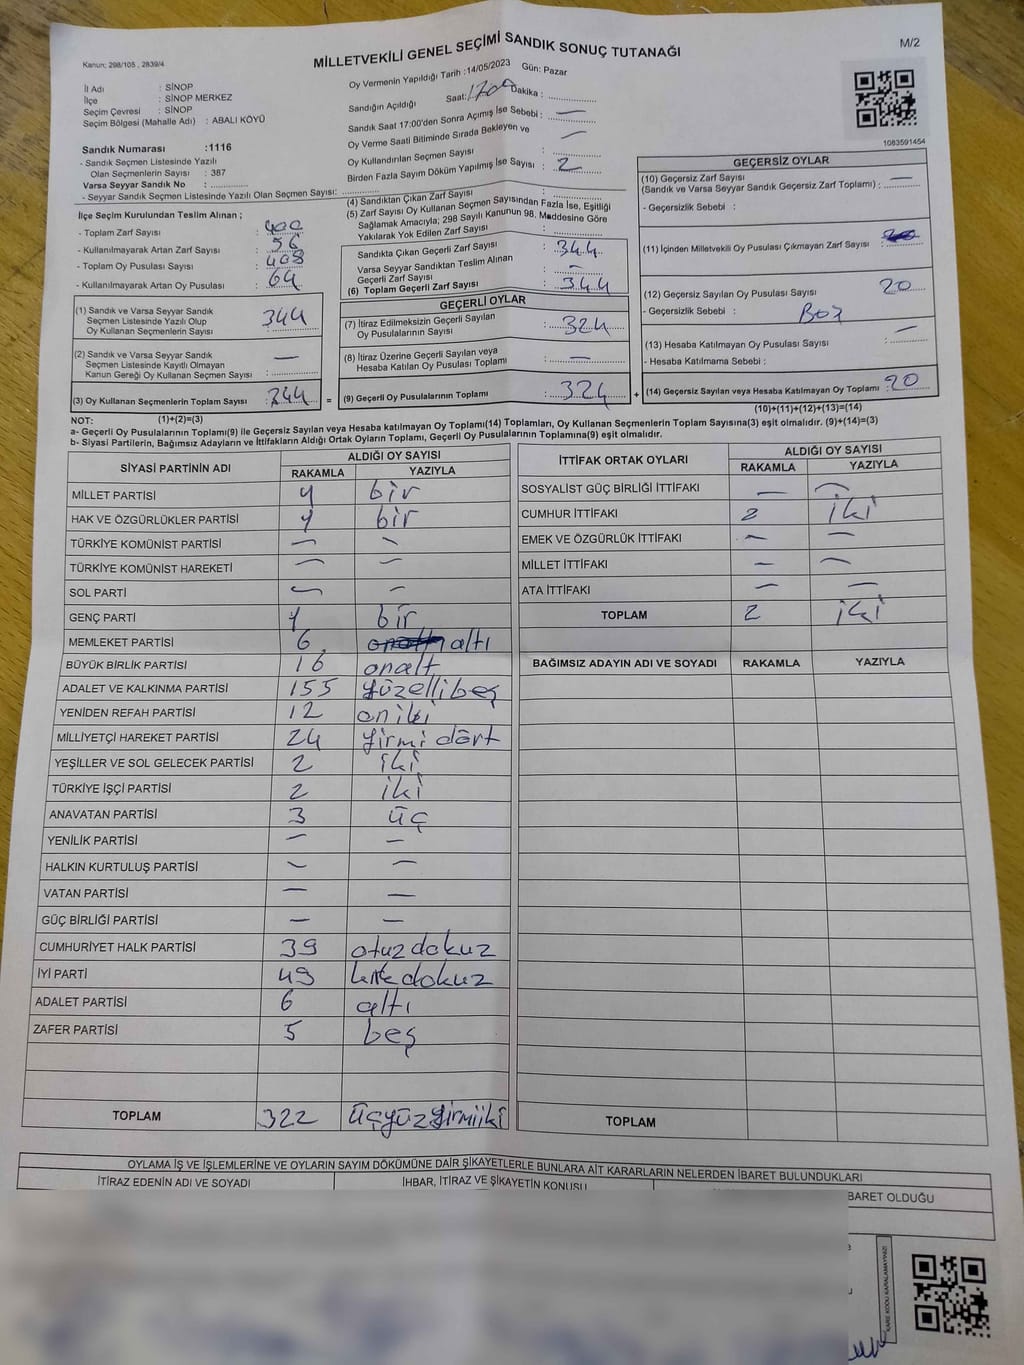 Kanun; 298/105 , 2839/4
MİLLETVEKİLİ GENEL SEÇİMİ SANDIK SONUÇ TUTANAĞI
M/2
İl Adı : SİNOP
İlçe : SİNOP MERKEZ
Seçim Çevresi : SİNOP
Seçim Bölgesi (Mahalle Adı) : ABALI KÖYÜ
Sandık Numarası :1116
- Sandık Seçmen Listesinde Yazılı
Olan Seçmenlerin Sayısı : 387
Varsa Seyyar Sandık No :
- Seyyar Sandık Seçmen Listesinde Yazılı Olan Seçmen Sayısı:
Oy Vermenin Yapıldığı Tarih :14/05/2023 Gün: Pazar
Sandığın Açıldığı Saat: 1700 Dakika :
Sandık Saat 17:00'den Sonra Açımış İse Sebebi : —
Oy Verme Saati Bitiminde Sırada Bekleyen ve
Oy Kullandırılan Seçmen Sayısı : —
Birden Fazla Sayım Döküm Yapılmış İse Sayısı : 2
1083591454
İlçe Seçim Kurulundan Teslim Alınan ;
- Toplam Zarf Sayısı : 400
- Kullanılmayarak Artan Zarf Sayısı : 56
- Toplam Oy Pusulası Sayısı : 408
- Kullanılmayarak Artan Oy Pusulası : 64
(1) Sandık ve Varsa Seyyar Sandık
Seçmen Listesinde Yazılı Olup
Oy Kullanan Seçmenlerin Sayısı : 344
(2) Sandık ve Varsa Seyyar Sandık
Seçmen Listesinde Kayıtlı Olmayan
Kanun Gereği Oy Kullanan Seçmen Sayısı : —
(3) Oy Kullanan Seçmenlerin Toplam Sayısı : 344 =
(1)+(2)=(3)
(4) Sandıktan Çıkan Zarf Sayısı :
(5) Zarf Sayısı Oy Kullanan Seçmen Sayısından Fazla İse, Eşitliği
Sağlamak Amacıyla; 298 Sayılı Kanunun 98. Maddesine Göre
Yakılarak Yok Edilen Zarf Sayısı :
Sandıkta Çıkan Geçerli Zarf Sayısı : 344
Varsa Seyyar Sandıktan Teslim Alınan
Geçerli Zarf Sayısı : —
(6) Toplam Geçerli Zarf Sayısı : 344
GEÇERLİ OYLAR
(7) İtiraz Edilmeksizin Geçerli Sayılan
Oy Pusulalarının Sayısı : 324
(8) İtiraz Üzerine Geçerli Sayılan veya
Hesaba Katılan Oy Pusulası Toplamı : —
(9) Geçerli Oy Pusulalarının Toplamı : 324 +
GEÇERSİZ OYLAR
(10) Geçersiz Zarf Sayısı
(Sandık ve Varsa Seyyar Sandık Geçersiz Zarf Toplamı) : —
- Geçersizlik Sebebi :
(11) İçinden Milletvekili Oy Pusulası Çıkmayan Zarf Sayısı :
(12) Geçersiz Sayılan Oy Pusulası Sayısı : 20
- Geçersizlik Sebebi : Boş
(13) Hesaba Katılmayan Oy Pusulası Sayısı : —
- Hesaba Katılmama Sebebi :
(14) Geçersiz Sayılan veya Hesaba Katılmayan Oy Toplamı : 20
(10)+(11)+(12)+(13)=(14)
NOT:
a- Geçerli Oy Pusulalarının Toplamı(9) ile Geçersiz Sayılan veya Hesaba Katılmayan Oy Toplamı(14) Toplamları, Oy Kullanan Seçmenlerin Toplam Sayısına(3) eşit olmalıdır. (9)+(14)=(3)
b- Siyasi Partilerin, Bağımsız Adayların ve İttifakların Aldığı Ortak Oyların Toplamı, Geçerli Oy Pusulalarının Toplamına(9) eşit olmalıdır.
SİYASİ PARTİNİN ADI ALDIĞI OY SAYISI
RAKAMLA YAZIYLA
MİLLET PARTİSİ 1 bir
HAK VE ÖZGÜRLÜKLER PARTİSİ 1 bir
TÜRKİYE KOMÜNİST PARTİSİ — —
TÜRKİYE KOMÜNİST HAREKETİ — —
SOL PARTİ — —
GENÇ PARTİ 1 bir
MEMLEKET PARTİSİ 6 altı
BÜYÜK BİRLİK PARTİSİ 16 onalt
ADALET VE KALKINMA PARTİSİ 155 yüzellibeş
YENİDEN REFAH PARTİSİ 12 oniki
MİLLİYETÇİ HAREKET PARTİSİ 24 yirmi dört
YEŞİLLER VE SOL GELECEK PARTİSİ 2 iki
TÜRKİYE İŞÇİ PARTİSİ 2 iki
ANAVATAN PARTİSİ 3 üç
YENİLİK PARTİSİ — —
HALKIN KURTULUŞ PARTİSİ — —
VATAN PARTİSİ — —
GÜÇ BİRLİĞİ PARTİSİ — —
CUMHURİYET HALK PARTİSİ 39 otuz dokuz
İYİ PARTİ 49 dokuz
ADALET PARTİSİ 6 altı
ZAFER PARTİSİ 5 beş
TOPLAM 322 üçyüzyirmiiki
İTTİFAK ORTAK OYLARI ALDIĞI OY SAYISI
RAKAMLA YAZIYLA
SOSYALİST GÜÇ BİRLİĞİ İTTİFAKI — —
CUMHUR İTTİFAKI 2 iki
EMEK VE ÖZGÜRLÜK İTTİFAKI — —
MİLLET İTTİFAKI — —
ATA İTTİFAKI — —
TOPLAM 2 iki
BAĞIMSIZ ADAYIN ADI VE SOYADI RAKAMLA YAZIYLA
TOPLAM
OYLAMA İŞ VE İŞLEMLERİNE VE OYLARIN SAYIM DÖKÜMÜNE DAİR ŞİKAYETLERLE BUNLARA AİT KARARLARIN NELERDEN İBARET BULUNDUKLARI
İTİRAZ EDENİN ADI VE SOYADI İHBAR, İTİRAZ VE ŞİKAYETİN KONUSU BARET OLDUĞU
KARE KODU KARALAMAYINIZ!